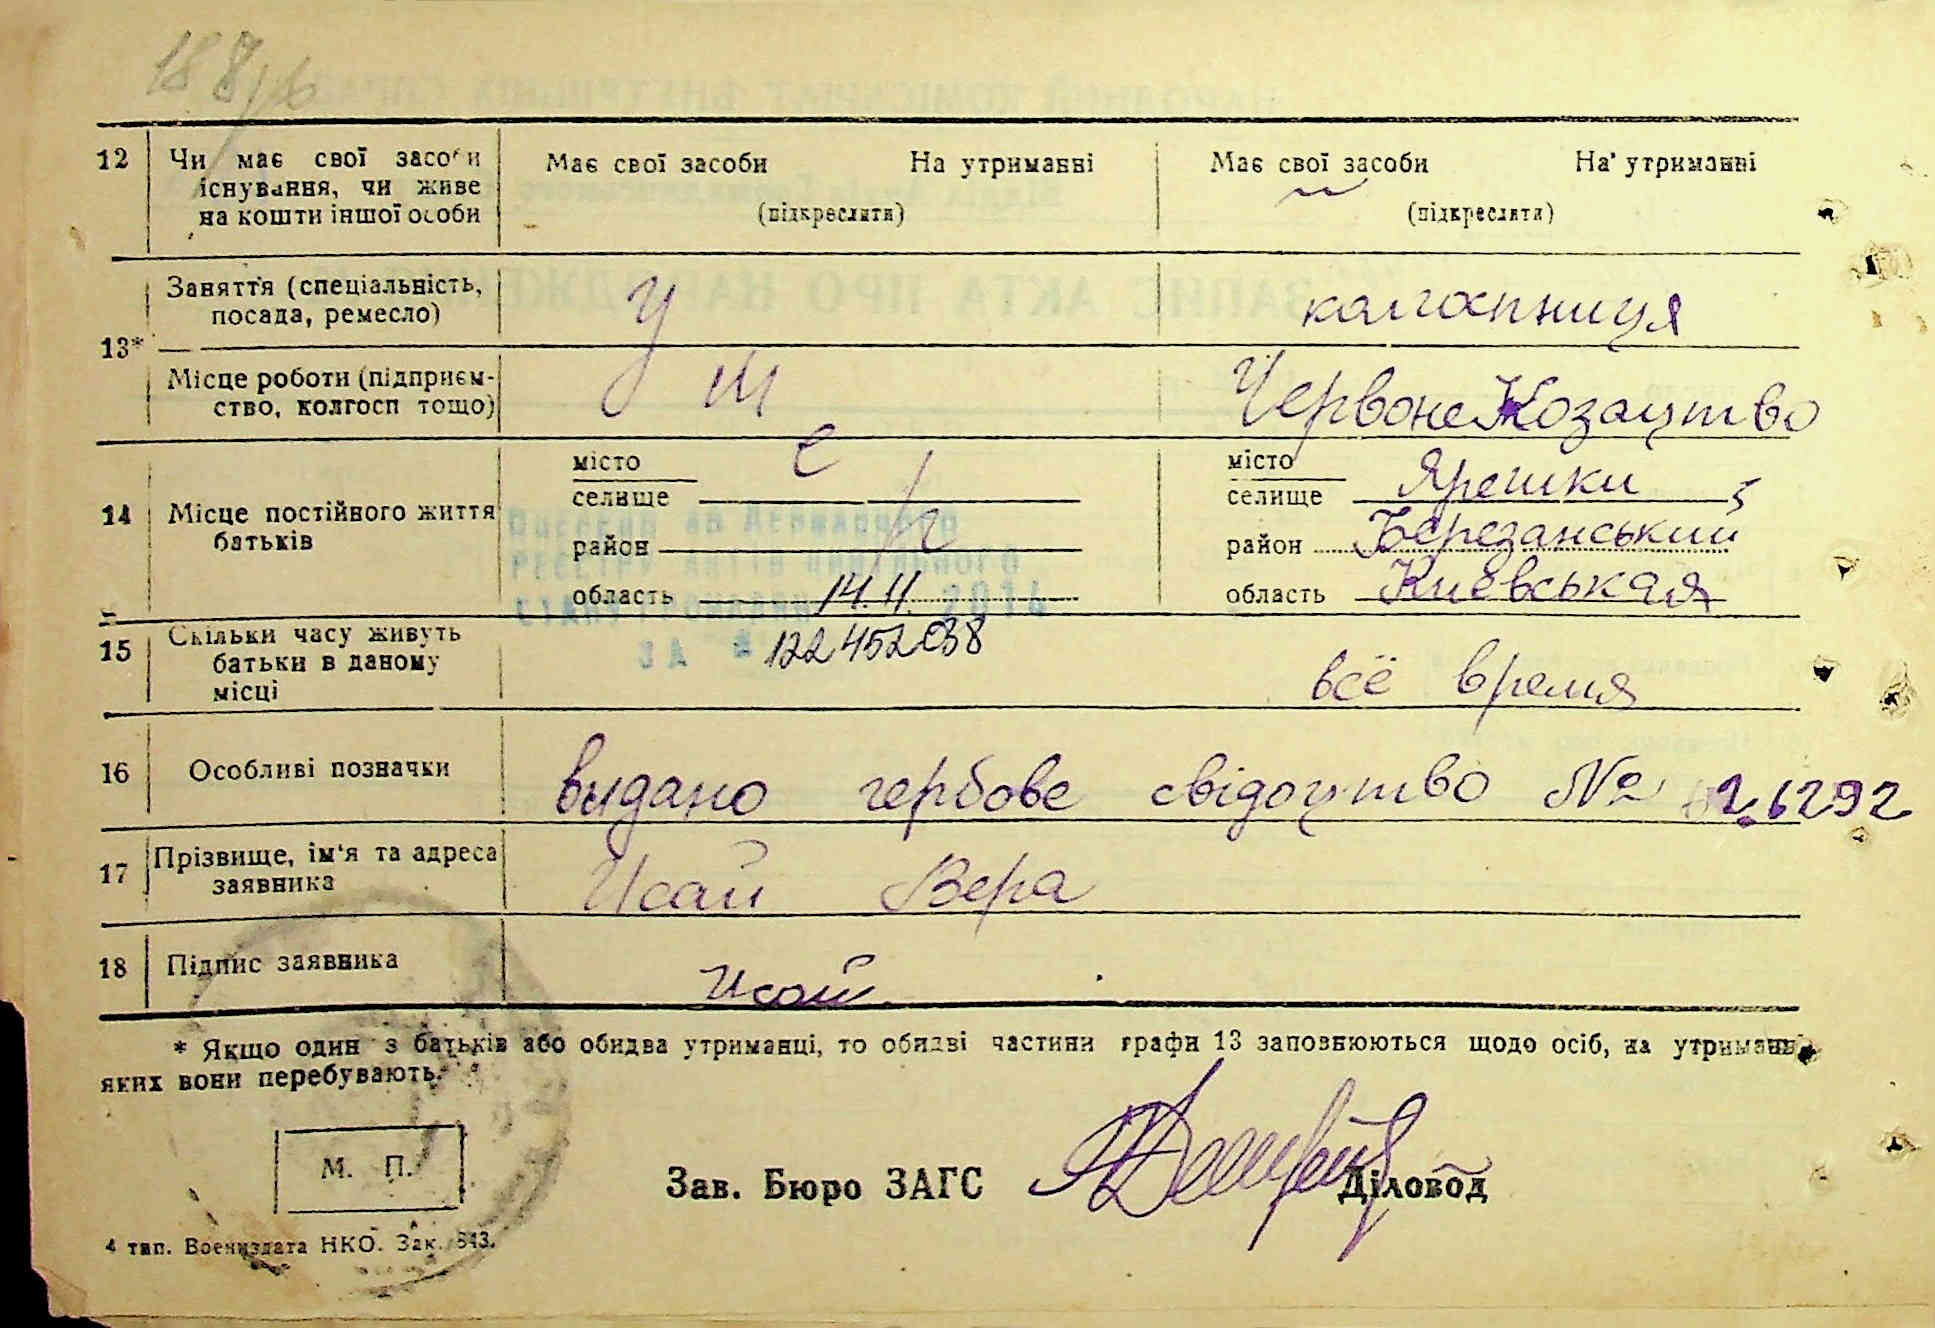 188/6
12 Чи має свої засоби існування, чи живе на кошти іншої особи
Має свої засоби На утриманні
(підкреслити)
Має свої засоби На утриманні
(підкреслити)
13* Заняття (спеціальність, посада, ремесло)
колгоспниця
Місце роботи (підприємство, колгосп тощо)
Червоне Козацтво
Умер
14 Місце постійного життя батьків
місто
селище
район
область
місто
селище Ярешки
район Березанський
область Киевськая
Внесено до Державного
реєстру актів цивільного
стану громадян 14.11. 2014
за № 122452038
15 Скільки часу живуть батьки в даному місці
всё время
16 Особливі позначки
видано гербове свідоцтво № 26292
17 Прізвище, ім'я та адреса заявника
Исай Вера
18 Підпис заявника
Исай
* Якщо один з батьків або обидва утриманці, то обидві частини графи 13 заповнюються щодо осіб, на утриманні
яких вони перебувають.
М. П.
Зав. Бюро ЗАГС Діловод
4 тип. Воениздата НКО. Зак. 843.